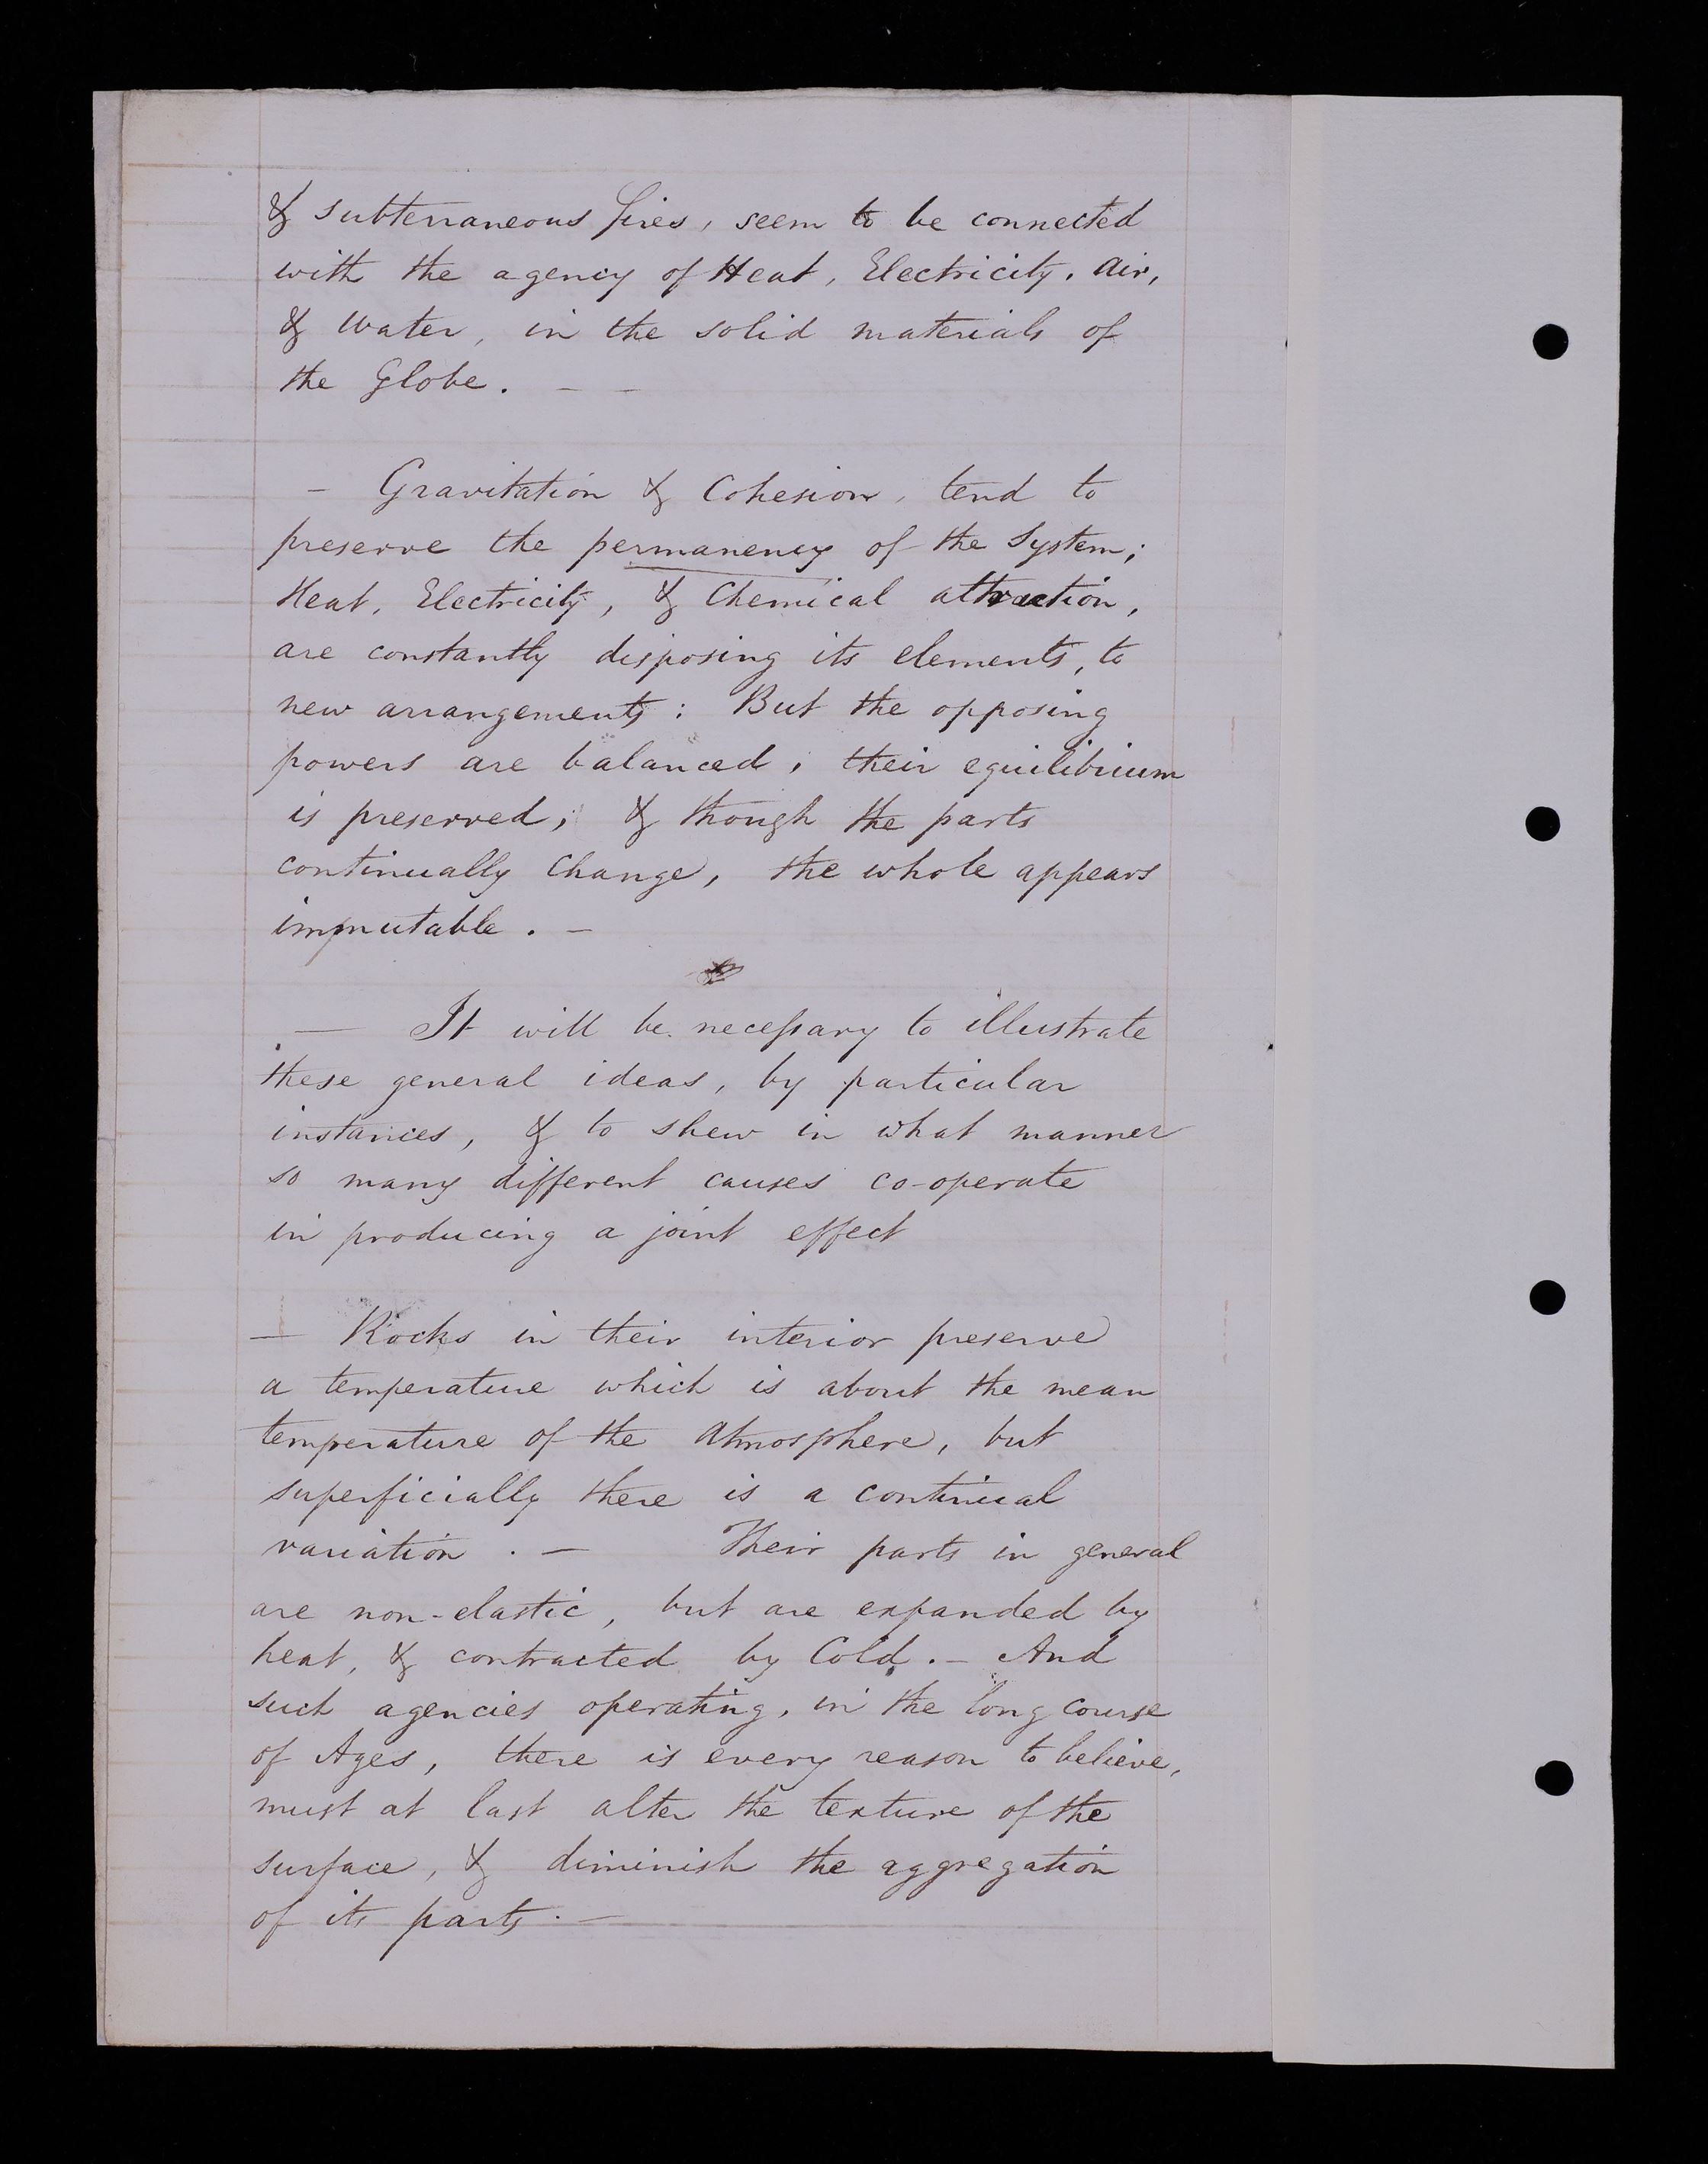 & subterraneous fires, seem to be connected
with the agency of Heat, Electricity, Air,
& Water, in the solid materials of
the Globe. — —
— Gravitation & Cohesion, tend to
preserve the permanency of the System;
Heat, Electricity, & Chemical attraction,
are constantly disposing its elements, to
new arrangements: But the opposing
powers are balanced, their equilibrium
is preserved; & though the parts
continually change, the whole appears
immutable. —
— It will be necessary to illustrate
these general ideas, by particular
instances, & to shew in what manner
so many different causes co-operate
in producing a joint effect
— Rocks in their interior preserve
a temperature which is about the mean
temperature of the Atmosphere, but
superficially there is a continual
variation. — Their parts in general
are non-elastic, but are expanded by
heat, & contracted by Cold. — And
such agencies operating, in the long course
of Ages, there is every reason to believe,
must at last alter the texture of the
surface, & diminish the aggregation
of its parts. —